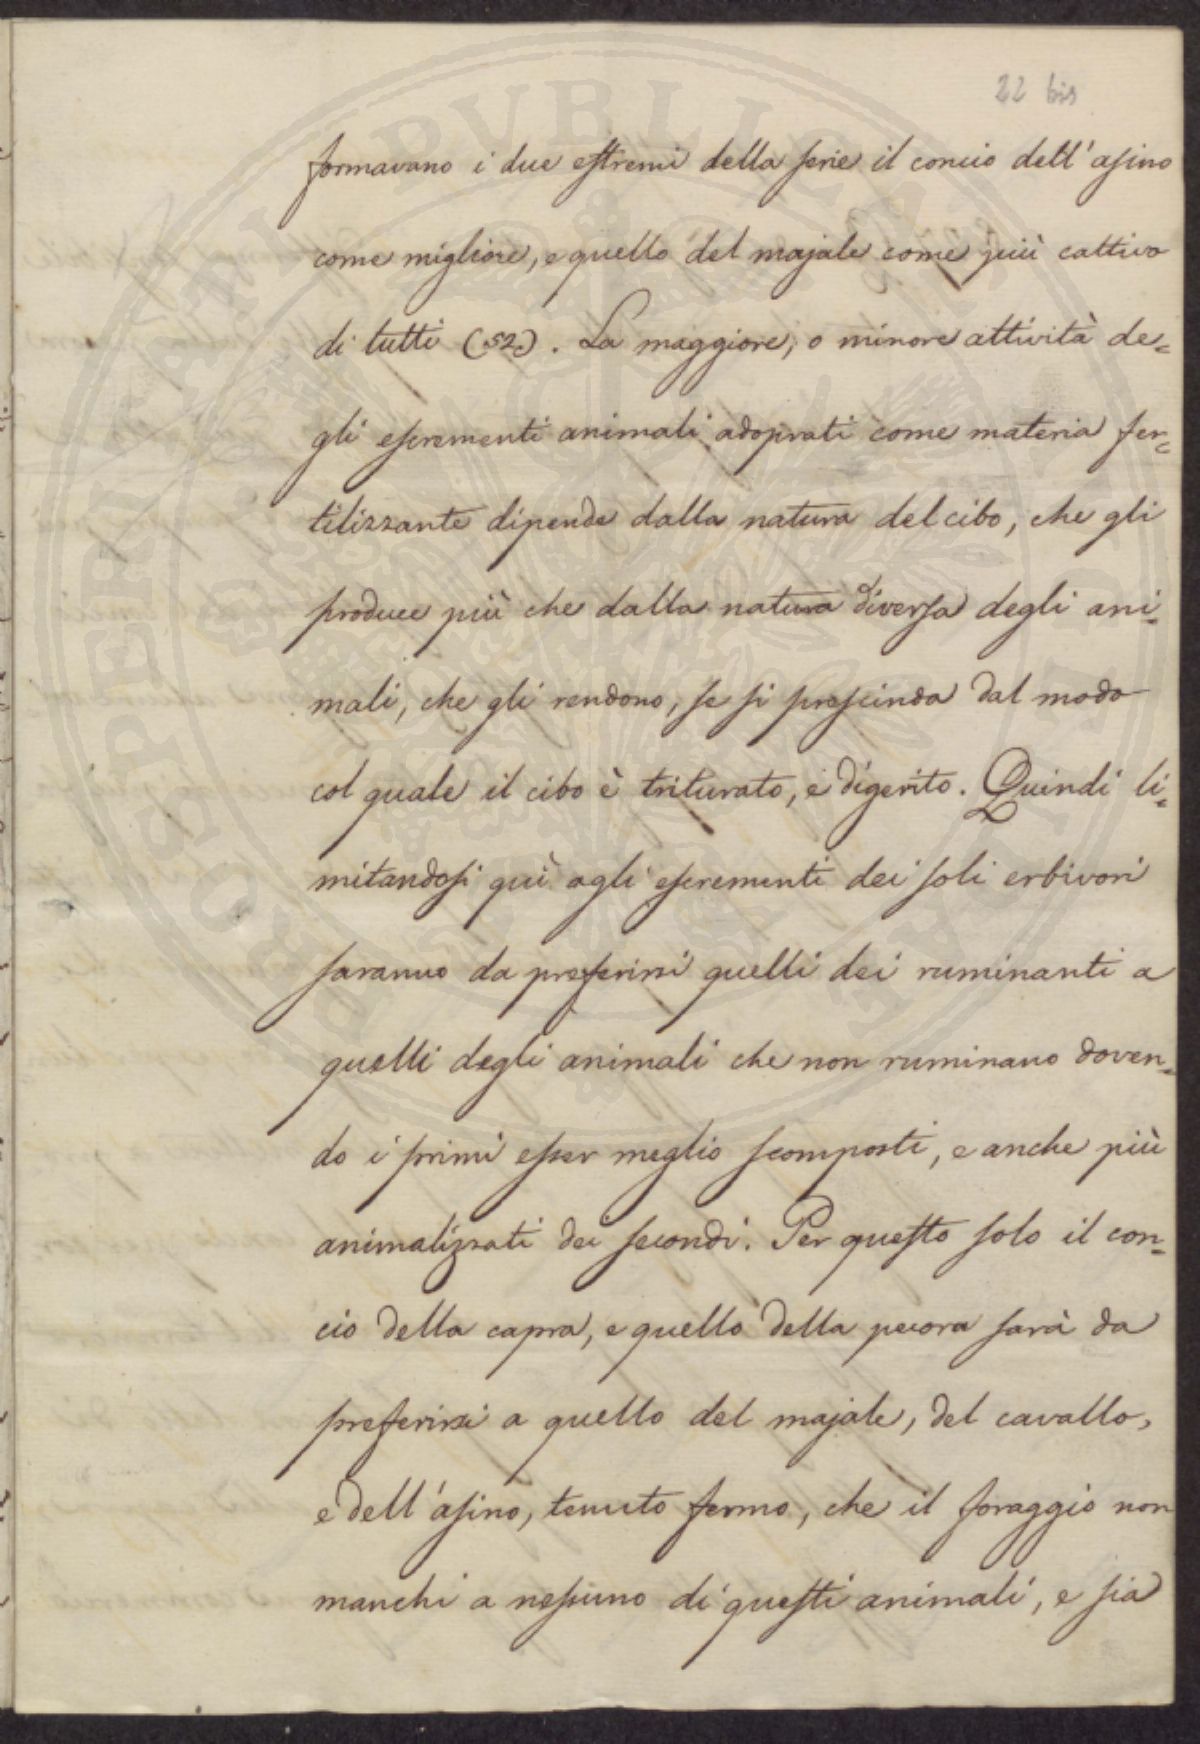 22 bis
formavano i due estremi della serie il concio dell'asino
come migliore, e quello del majale come più cattivo
di tutti (52). La maggiore, o minore attività de=
gli escrementi animali adoprati come materia fer=
tilizzante dipende dalla natura del cibo, che gli
produce più che dalla natura diversa degli ani=
mali, che gli rendono, se si prescinda dal modo
col quale il cibo è triturato, e digerito. Quindi li=
mitandosi quì agli escrementi dei soli erbivori
saranno da preferirsi quelli dei ruminanti a
quelli degli animali che non ruminano doven=
do i primi esser meglio scomposti, e anche più
animalizzati dei secondi. Per questo solo il con=
cio della capra, e quello della pecora sarà da
preferirsi a quello del majale, del cavallo,
e dell'asino, tenuto fermo, che il foraggio non
manchi a nessuno di questi animali, e sia
PROSPERITATI PVBLICAE AVGENDAE